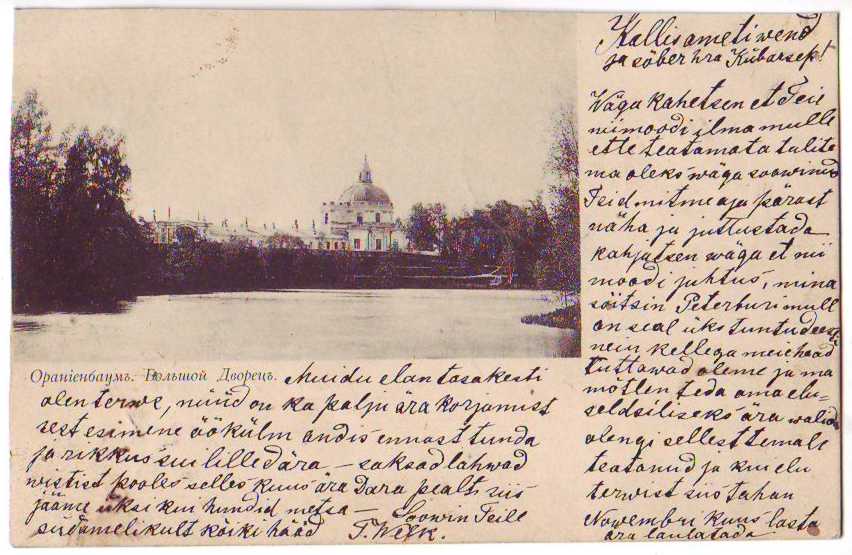 Kallis ametiwend
ja sõber hra Kübarsepp!
Wäga kahetsen et Teie
niimoodi ilma mulle
ette teatamata tulite
ma oleks wäga soowinud
Teid mitme aja pärast
näha ja juttustada
kahjatsen wäga et nii
moodi juhtus, mina
sõitsin Peterburi mull
on seal üks tuntud eesti
neiu kellega meie head
tuttawad oleme ja ma
mõtlen teda oma elu-
seldsiliseks ära walida
olen gi sellest temale
teatanud ja kui elu
terwist siis tahan
Nowembri kuus lasta
ära laulatada
Ораніенбаумъ. Большой Дворецъ.
Muidu elan tasakesti
olen terwe, nüüd on ka palju ära korjamist
sest esimene öökülm andis ennast tunda
ja rikkus sui lilled ära — saksad lahwad
wistist pooles selles kuus ära Dara pealt, siis
jääme üksi kui hundid metsa — Soowin Teile
südamelikult kõiki hääd T. Welk.